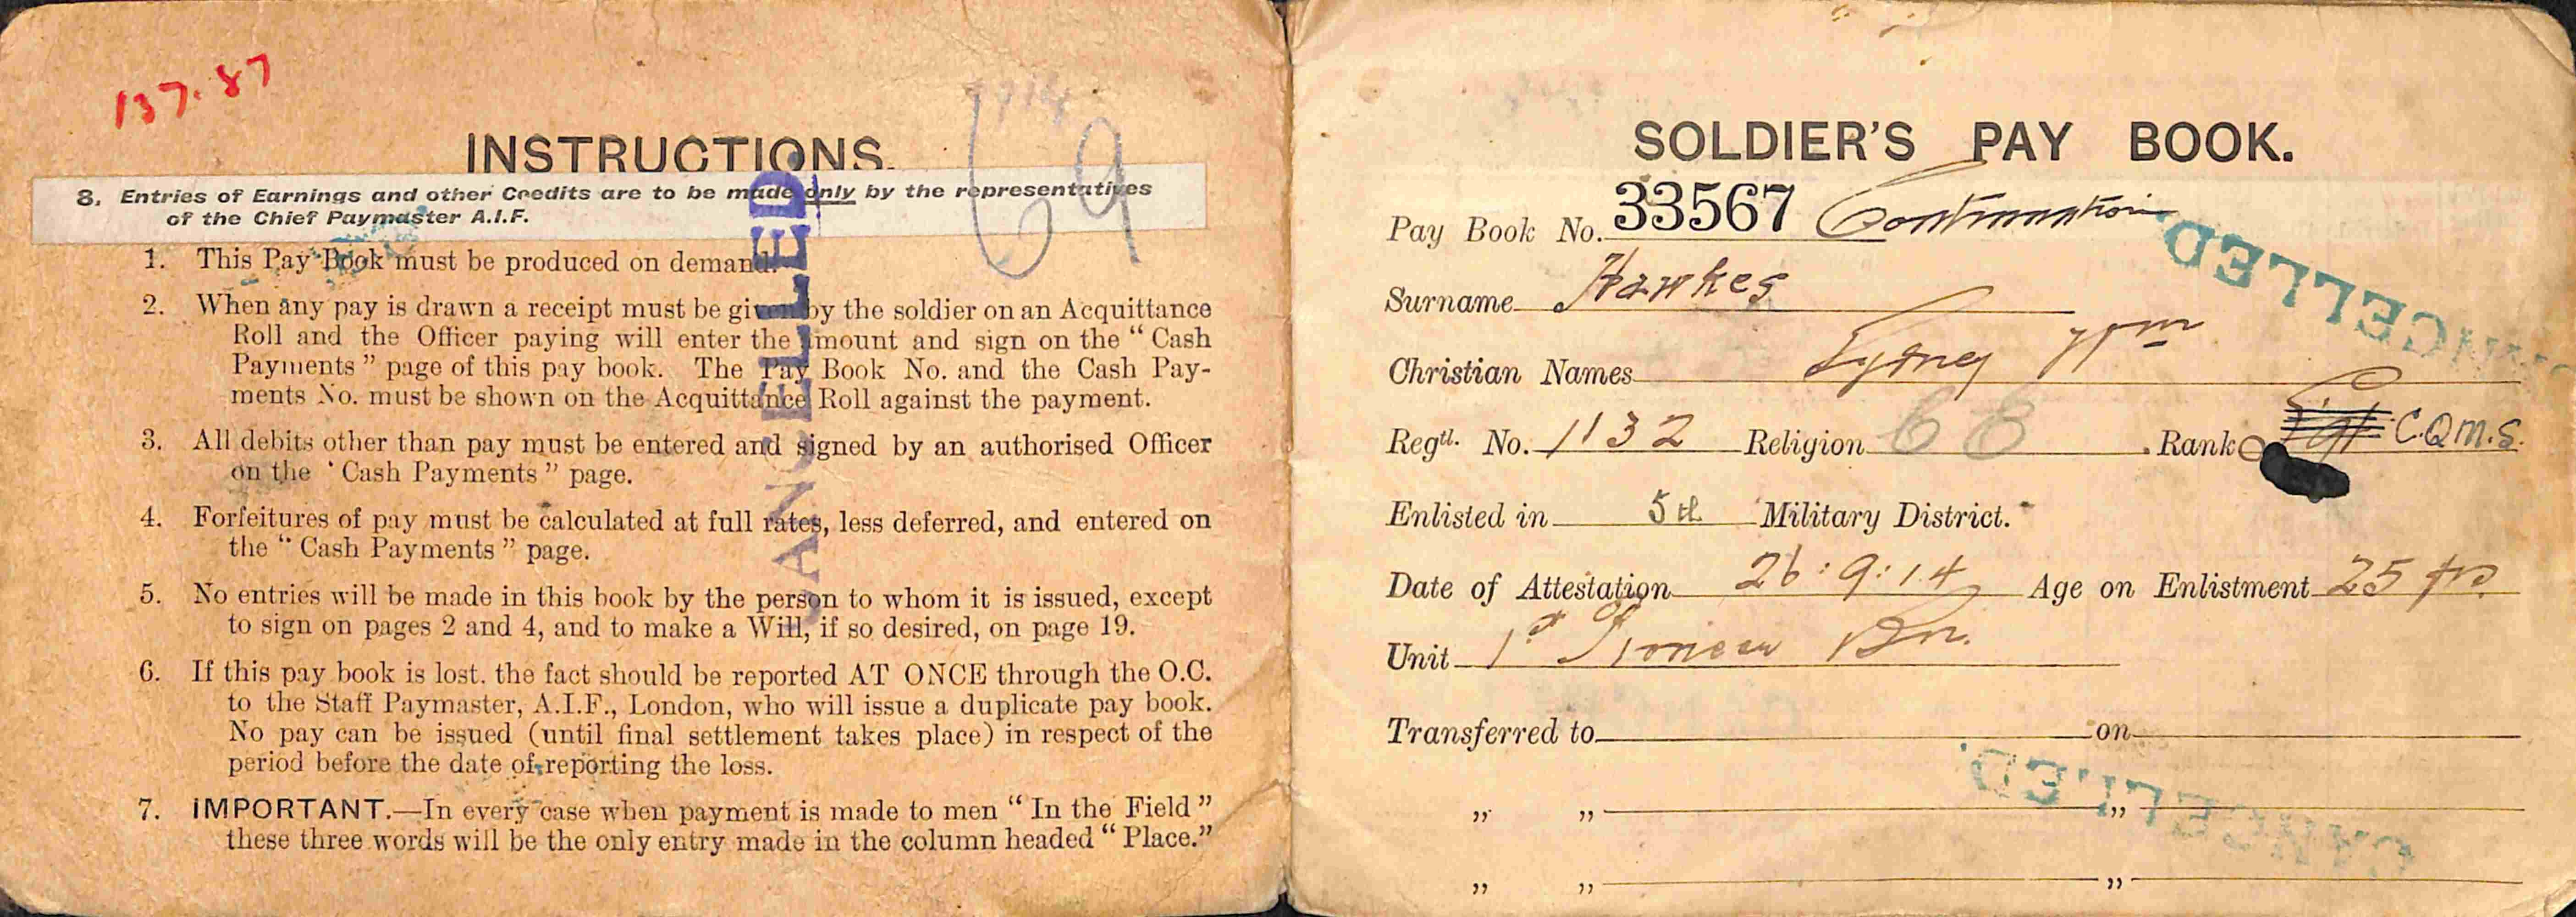 137.87
69
INSTRUCTIONS.
8. Entries of Earnings and other Credits are to be made only by the representatives
of the Chief Paymaster A.I.F.
CANCELLED
1. This Pay Book must be produced on demand.
2. When any pay is drawn a receipt must be given by the soldier on an Acquittance
Roll and the Officer paying will enter the amount and sign on the “ Cash
Payments ” page of this pay book. The Pay Book No. and the Cash Pay-
ments No. must be shown on the Acquittance Roll against the payment.
3. All debits other than pay must be entered and signed by an authorised Officer
on the ‘ Cash Payments ” page.
4. Forfeitures of pay must be calculated at full rates, less deferred, and entered on
the “ Cash Payments ” page.
5. No entries will be made in this book by the person to whom it is issued, except
to sign on pages 2 and 4, and to make a Will, if so desired, on page 19.
6. If this pay book is lost. the fact should be reported AT ONCE through the O.C.
to the Staff Paymaster, A.I.F., London, who will issue a duplicate pay book.
No pay can be issued (until final settlement takes place) in respect of the
period before the date of reporting the loss.
7. IMPORTANT.—In every case when payment is made to men “ In the Field ”
these three words will be the only entry made in the column headed “ Place.”
SOLDIER'S PAY BOOK.
Pay Book No. 33567 Continuation
CANCELLED
Surname Hawkes
Christian Names Sydney Wm
Regtl. No. 1132 Religion CE Rank Sgt C.Q.M.S.
Enlisted in 5th Military District.
Date of Attestation 26:9:14 Age on Enlistment 25 yrs
Unit 1st Pioneer Bn.
Transferred to on
CANCELLED
„ „ „
„ „ „